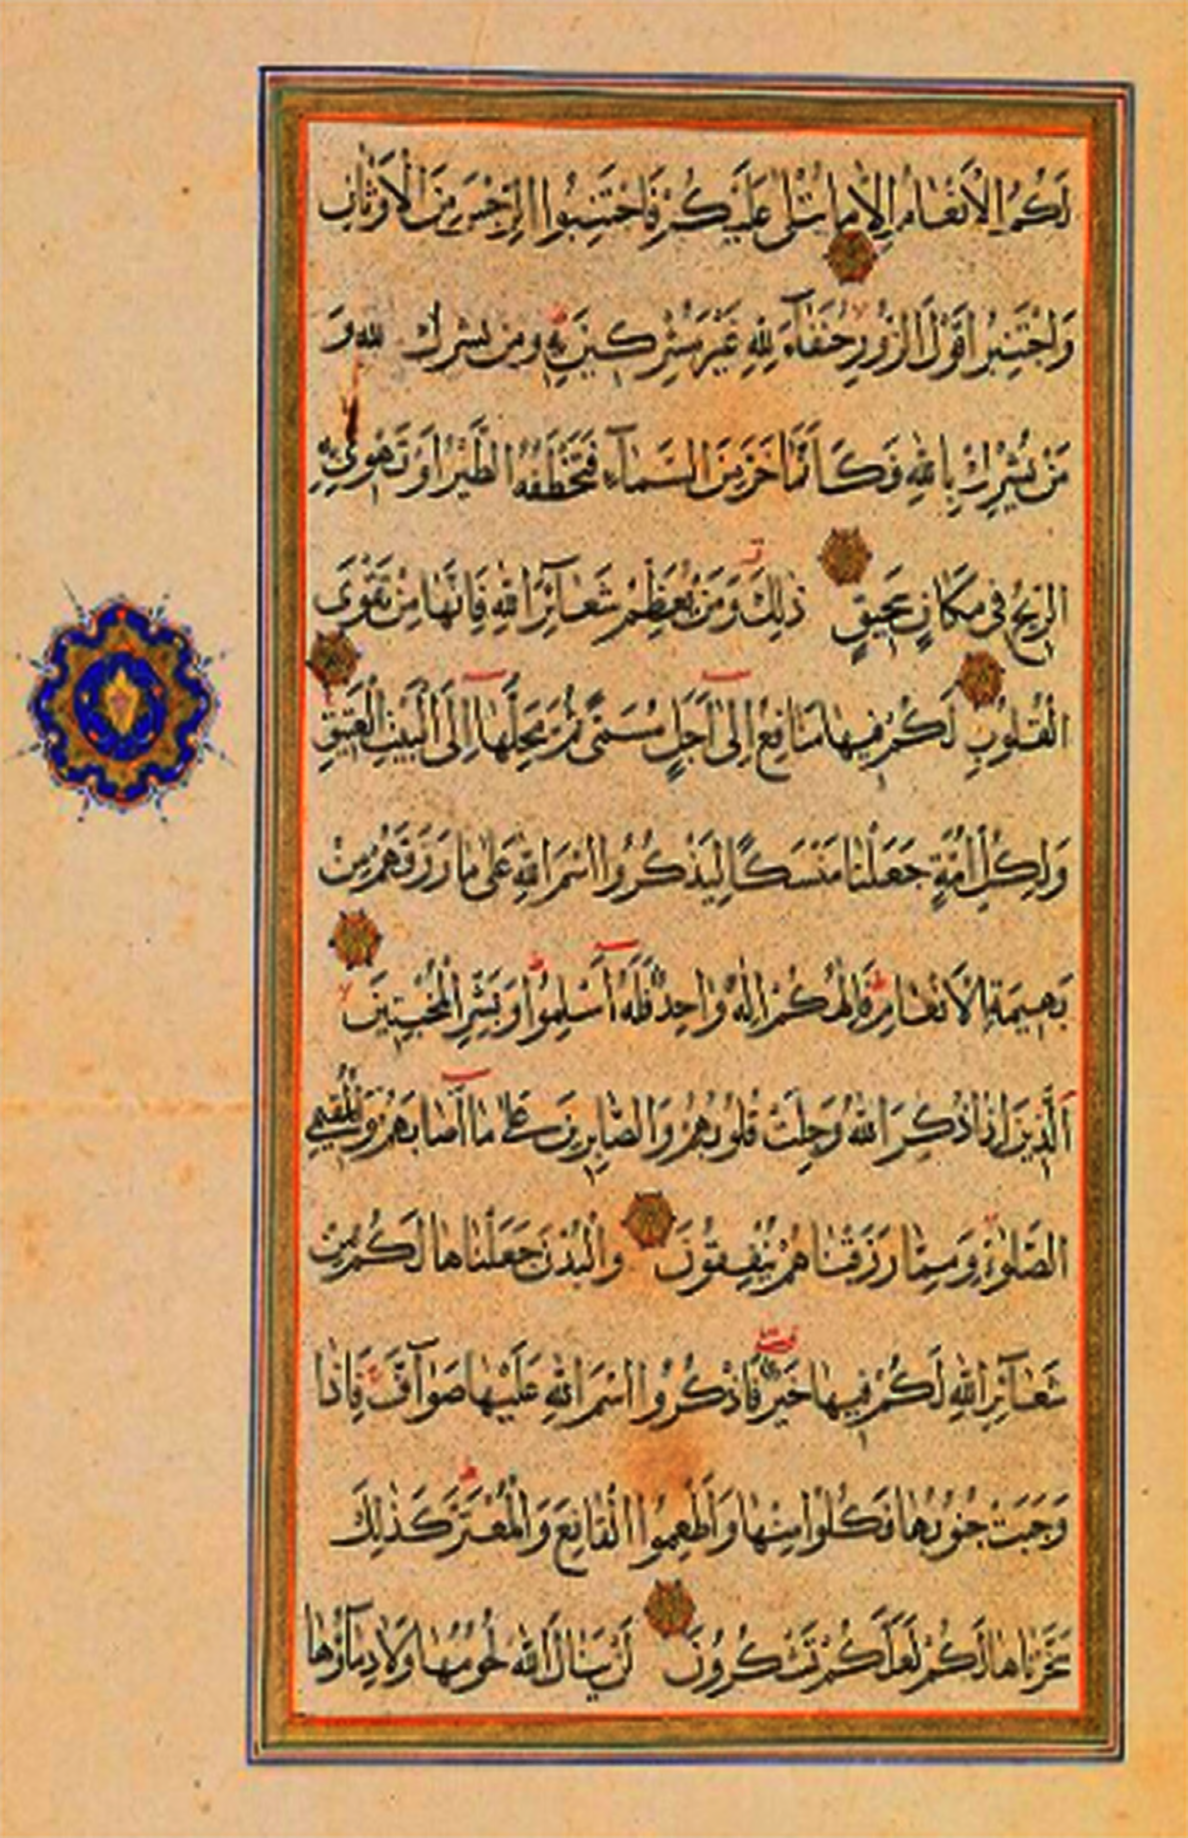 لَكُمُ الْاَنْعَامُ اِلَّا مَا يُتْلٰى عَلَيْكُمْ فَاجْتَنِبُوا الرِّجْسَ مِنَ الْاَوْثَانِ
وَاجْتَنِبُوا قَوْلَ الزُّورِ حُنَفَآءَ لِلّٰهِ غَيْرَ مُشْرِكِينَ بِهٖ وَمَنْ يُشْرِكْ
مَنْ يُشْرِكْ بِاللّٰهِ فَكَاَنَّمَا خَرَّ مِنَ السَّمَآءِ فَتَخْطَفُهُ الطَّيْرُ اَوْ تَهْوِي بِهِ
الرِّيحُ فِي مَكَانٍ سَحِيقٍ ذٰلِكَ وَمَنْ يُعَظِّمْ شَعَآئِرَ اللّٰهِ فَاِنَّهَا مِنْ تَقْوَى
الْقُلُوبِ لَكُمْ فِيهَا مَنَافِعُ اِلٰٓى اَجَلٍ مُسَمًّى ثُمَّ مَحِلُّهَآ اِلَى الْبَيْتِ الْعَتِيقِ
وَلِكُلِّ اُمَّةٍ جَعَلْنَا مَنْسَكًا لِيَذْكُرُوا اسْمَ اللّٰهِ عَلٰى مَا رَزَقَهُمْ مِنْ
بَهِيمَةِ الْاَنْعَامِ فَاِلٰهُكُمْ اِلٰهٌ وَاحِدٌ فَلَهُٓ اَسْلِمُوا وَبَشِّرِ الْمُخْبِتِينَ
اَلَّذِينَ اِذَا ذُكِرَ اللّٰهُ وَجِلَتْ قُلُوبُهُمْ وَالصَّابِرِينَ عَلٰى مَآ اَصَابَهُمْ وَالْمُقِيمِي
الصَّلٰوةِ وَمِمَّا رَزَقْنَاهُمْ يُنْفِقُونَ وَالْبُدْنَ جَعَلْنَاهَا لَكُمْ مِنْ
شَعَآئِرِ اللّٰهِ لَكُمْ فِيهَا خَيْرٌ فَاذْكُرُوا اسْمَ اللّٰهِ عَلَيْهَا صَوَآفَّ فَاِذَا
وَجَبَتْ جُنُوبُهَا فَكُلُوا مِنْهَا وَاَطْعِمُوا الْقَانِعَ وَالْمُعْتَرَّ كَذٰلِكَ
سَخَّرْنَاهَا لَكُمْ لَعَلَّكُمْ تَشْكُرُونَ لَنْ يَنَالَ اللّٰهَ لُحُومُهَا وَلَا دِمَآؤُهَا